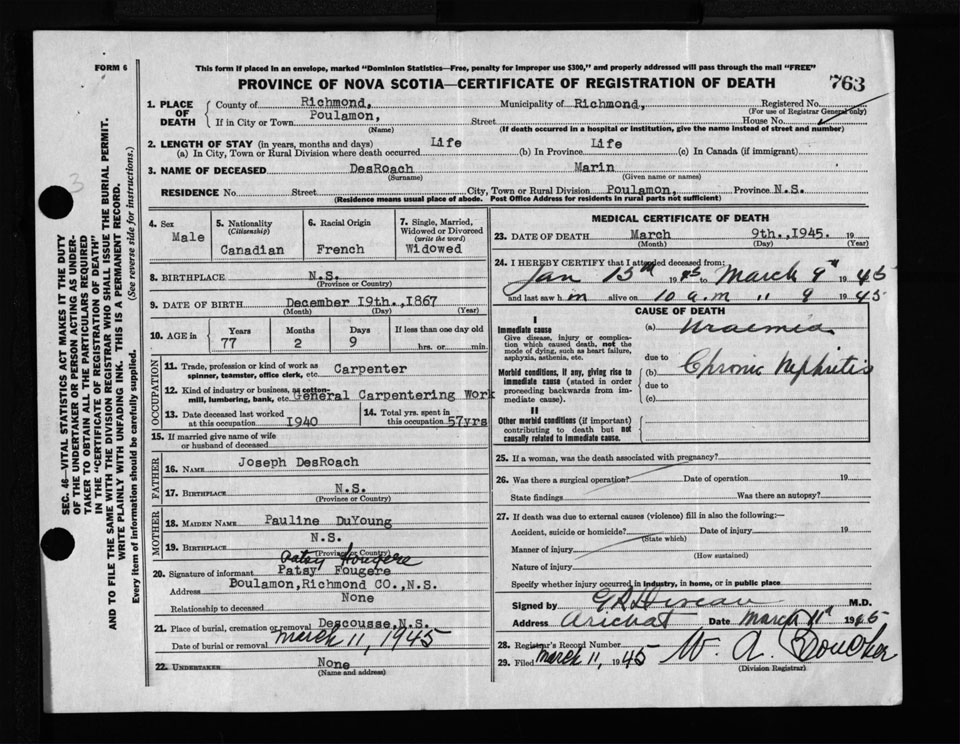 FORM 6
This form if placed in an envelope, marked "Dominion Statistics—Free, penalty for improper use $300," and properly addressed will pass through the mail "FREE"
PROVINCE OF NOVA SCOTIA—CERTIFICATE OF REGISTRATION OF DEATH
763
3
SEC. 46—VITAL STATISTICS ACT MAKES IT THE DUTY
OF THE UNDERTAKER OR PERSON ACTING AS UNDER-
TAKER TO OBTAIN ALL THE PARTICULARS REQUIRED
IN THE "CERTIFICATE OF REGISTRATION OF DEATH"
AND TO FILE THE SAME WITH THE DIVISION REGISTRAR WHO SHALL ISSUE THE BURIAL PERMIT.
WRITE PLAINLY WITH UNFADING INK. THIS IS A PERMANENT RECORD.
Every item of information should be carefully supplied. (See reverse side for instructions.)
1. PLACE OF DEATH
County of Richmond, Municipality of Richmond, Registered No.
(For use of Registrar General only)
If in City or Town Poulamon, Street House No.
(Name) (If death occurred in a hospital or institution, give the name instead of street and number)
2. LENGTH OF STAY (in years, months and days)
(a) In City, Town or Rural Division where death occurred Life (b) In Province Life (c) In Canada (if immigrant)
3. NAME OF DECEASED DesRoach Marin
(Surname) (Given name or names)
RESIDENCE No. Street City, Town or Rural Division Poulamon, Province N.S.
(Residence means usual place of abode. Post Office Address for residents in rural parts not sufficient)
4. Sex
Male
5. Nationality
(Citizenship)
Canadian
6. Racial Origin
French
7. Single, Married,
Widowed or Divorced
(write the word)
Widowed
8. BIRTHPLACE N.S.
(Province or Country)
9. DATE OF BIRTH December 19th.,1867
(Month) (Day) (Year)
10. AGE in
Years Months Days If less than one day old
77 2 9 hrs. or min.
OCCUPATION
11. Trade, profession or kind of work as
spinner, teamster, office clerk, etc. Carpenter
12. Kind of industry or business, as cotton-
mill, lumbering, bank, etc. General Carpentering Work
13. Date deceased last worked
at this occupation 1940
14. Total yrs. spent in
this occupation 57yrs
15. If married give name of wife
or husband of deceased
FATHER
16. NAME Joseph DesRoach
17. BIRTHPLACE N.S.
(Province or Country)
MOTHER
18. MAIDEN NAME Pauline DuYoung
19. BIRTHPLACE N.S.
(Province or Country)
Patsy Fougere
20. Signature of informant Patsy Fougere
Address Boulamon,Richmond CO.,N.S.
Relationship to deceased None
21. Place of burial, cremation or removal Descousse,N.S.
Date of burial or removal March 11, 1945
22. UNDERTAKER None
(Name and address)
MEDICAL CERTIFICATE OF DEATH
23. DATE OF DEATH March 9th.,1945. 19
(Month) (Day) (Year)
24. I HEREBY CERTIFY that I attended deceased from:
Jan 15th 1945 to March 9th 1945
and last saw him alive on 10 a.m " 9 1945
CAUSE OF DEATH
I
Immediate cause
Give disease, injury or complica-
tion which caused death, not the
mode of dying, such as heart failure,
asphyxia, asthenia, etc.
(a) Uraemia
due to
Morbid conditions, if any, giving rise to
immediate cause (stated in order
proceeding backwards from im-
mediate cause).
(b) Chronic Nephritis
due to
(c)
II
Other morbid conditions (if important)
contributing to death but not
causally related to immediate cause.
25. If a woman, was the death associated with pregnancy?
26. Was there a surgical operation? Date of operation 19
State findings Was there an autopsy?
27. If death was due to external causes (violence) fill in also the following:—
Accident, suicide or homicide? Date of injury 19
(State which)
Manner of injury
(How sustained)
Nature of injury
Specify whether injury occurred in industry, in home, or in public place
Signed by M.D.
Address Arichat Date March 11th 1945
28. Registrar's Record Number
29. Filed March 11, 1945 W. A. Boucher
(Division Registrar)